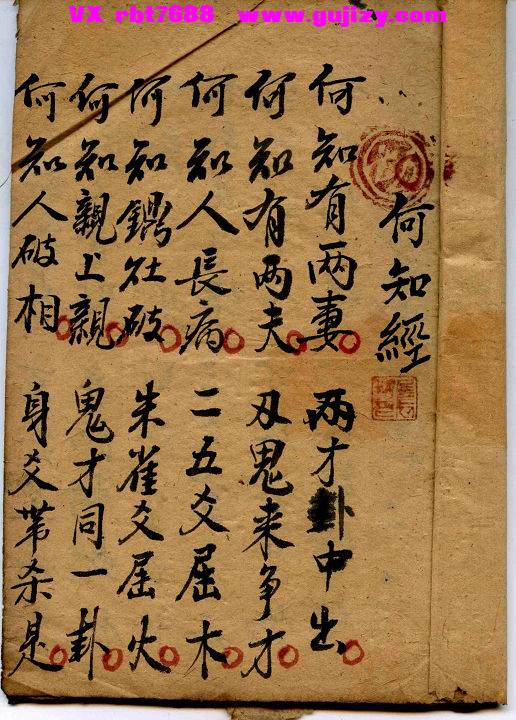 VX rbt7688 www.gujizy.com
何知經
何知有两妻 两才卦中出
何知有两夫 刄鬼来争才
何知人長病 二五爻屈木
何知鐫社破 朱雀爻屈火
何知親上親 鬼才同一卦
何知人破相 身爻苐杀是